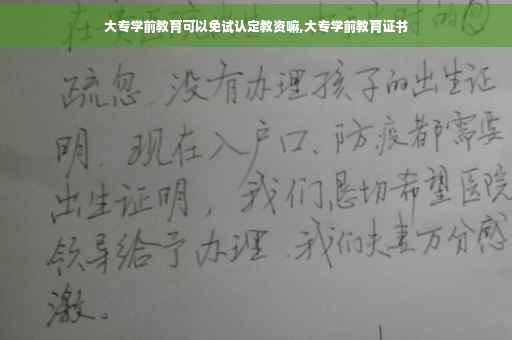 大专学前教育可以免试认定教资嘛,大专学前教育证书
疏忽、没有办理孩子的出生证
明、现在入户口、防疫都需要
出生证明，我们恳切希望医院
领导给予办理、我们夫妻万分感
激。